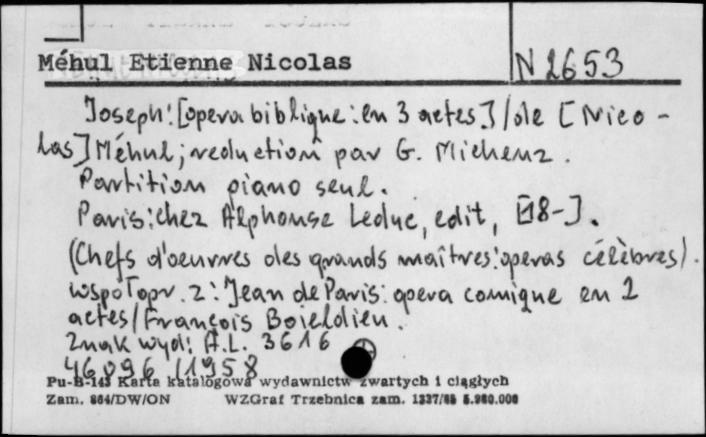 Méhul Etienne Nicolas
N 2653
Joseph: [opera biblique: en 3 actes] / de [Nico-
las] Méhul; reduction par G. Micheuz.
Partition piano seul.
Paris: chez Alphonse Leduc, edit, [18-].
(Chefs d'oeuvres des grands maîtres: operas célèbres).
współopr. z: Jean de Paris: opera comique en 2
actes / François Boieldieu.
Znak wyd: A.L. 3616
46096 / 1958
Pu-B-143 Karta katalogowa wydawnictw zwartych i ciągłych
Zam. 864/DW/ON WZGraf Trzebnica zam. 1337/88 5.980.000